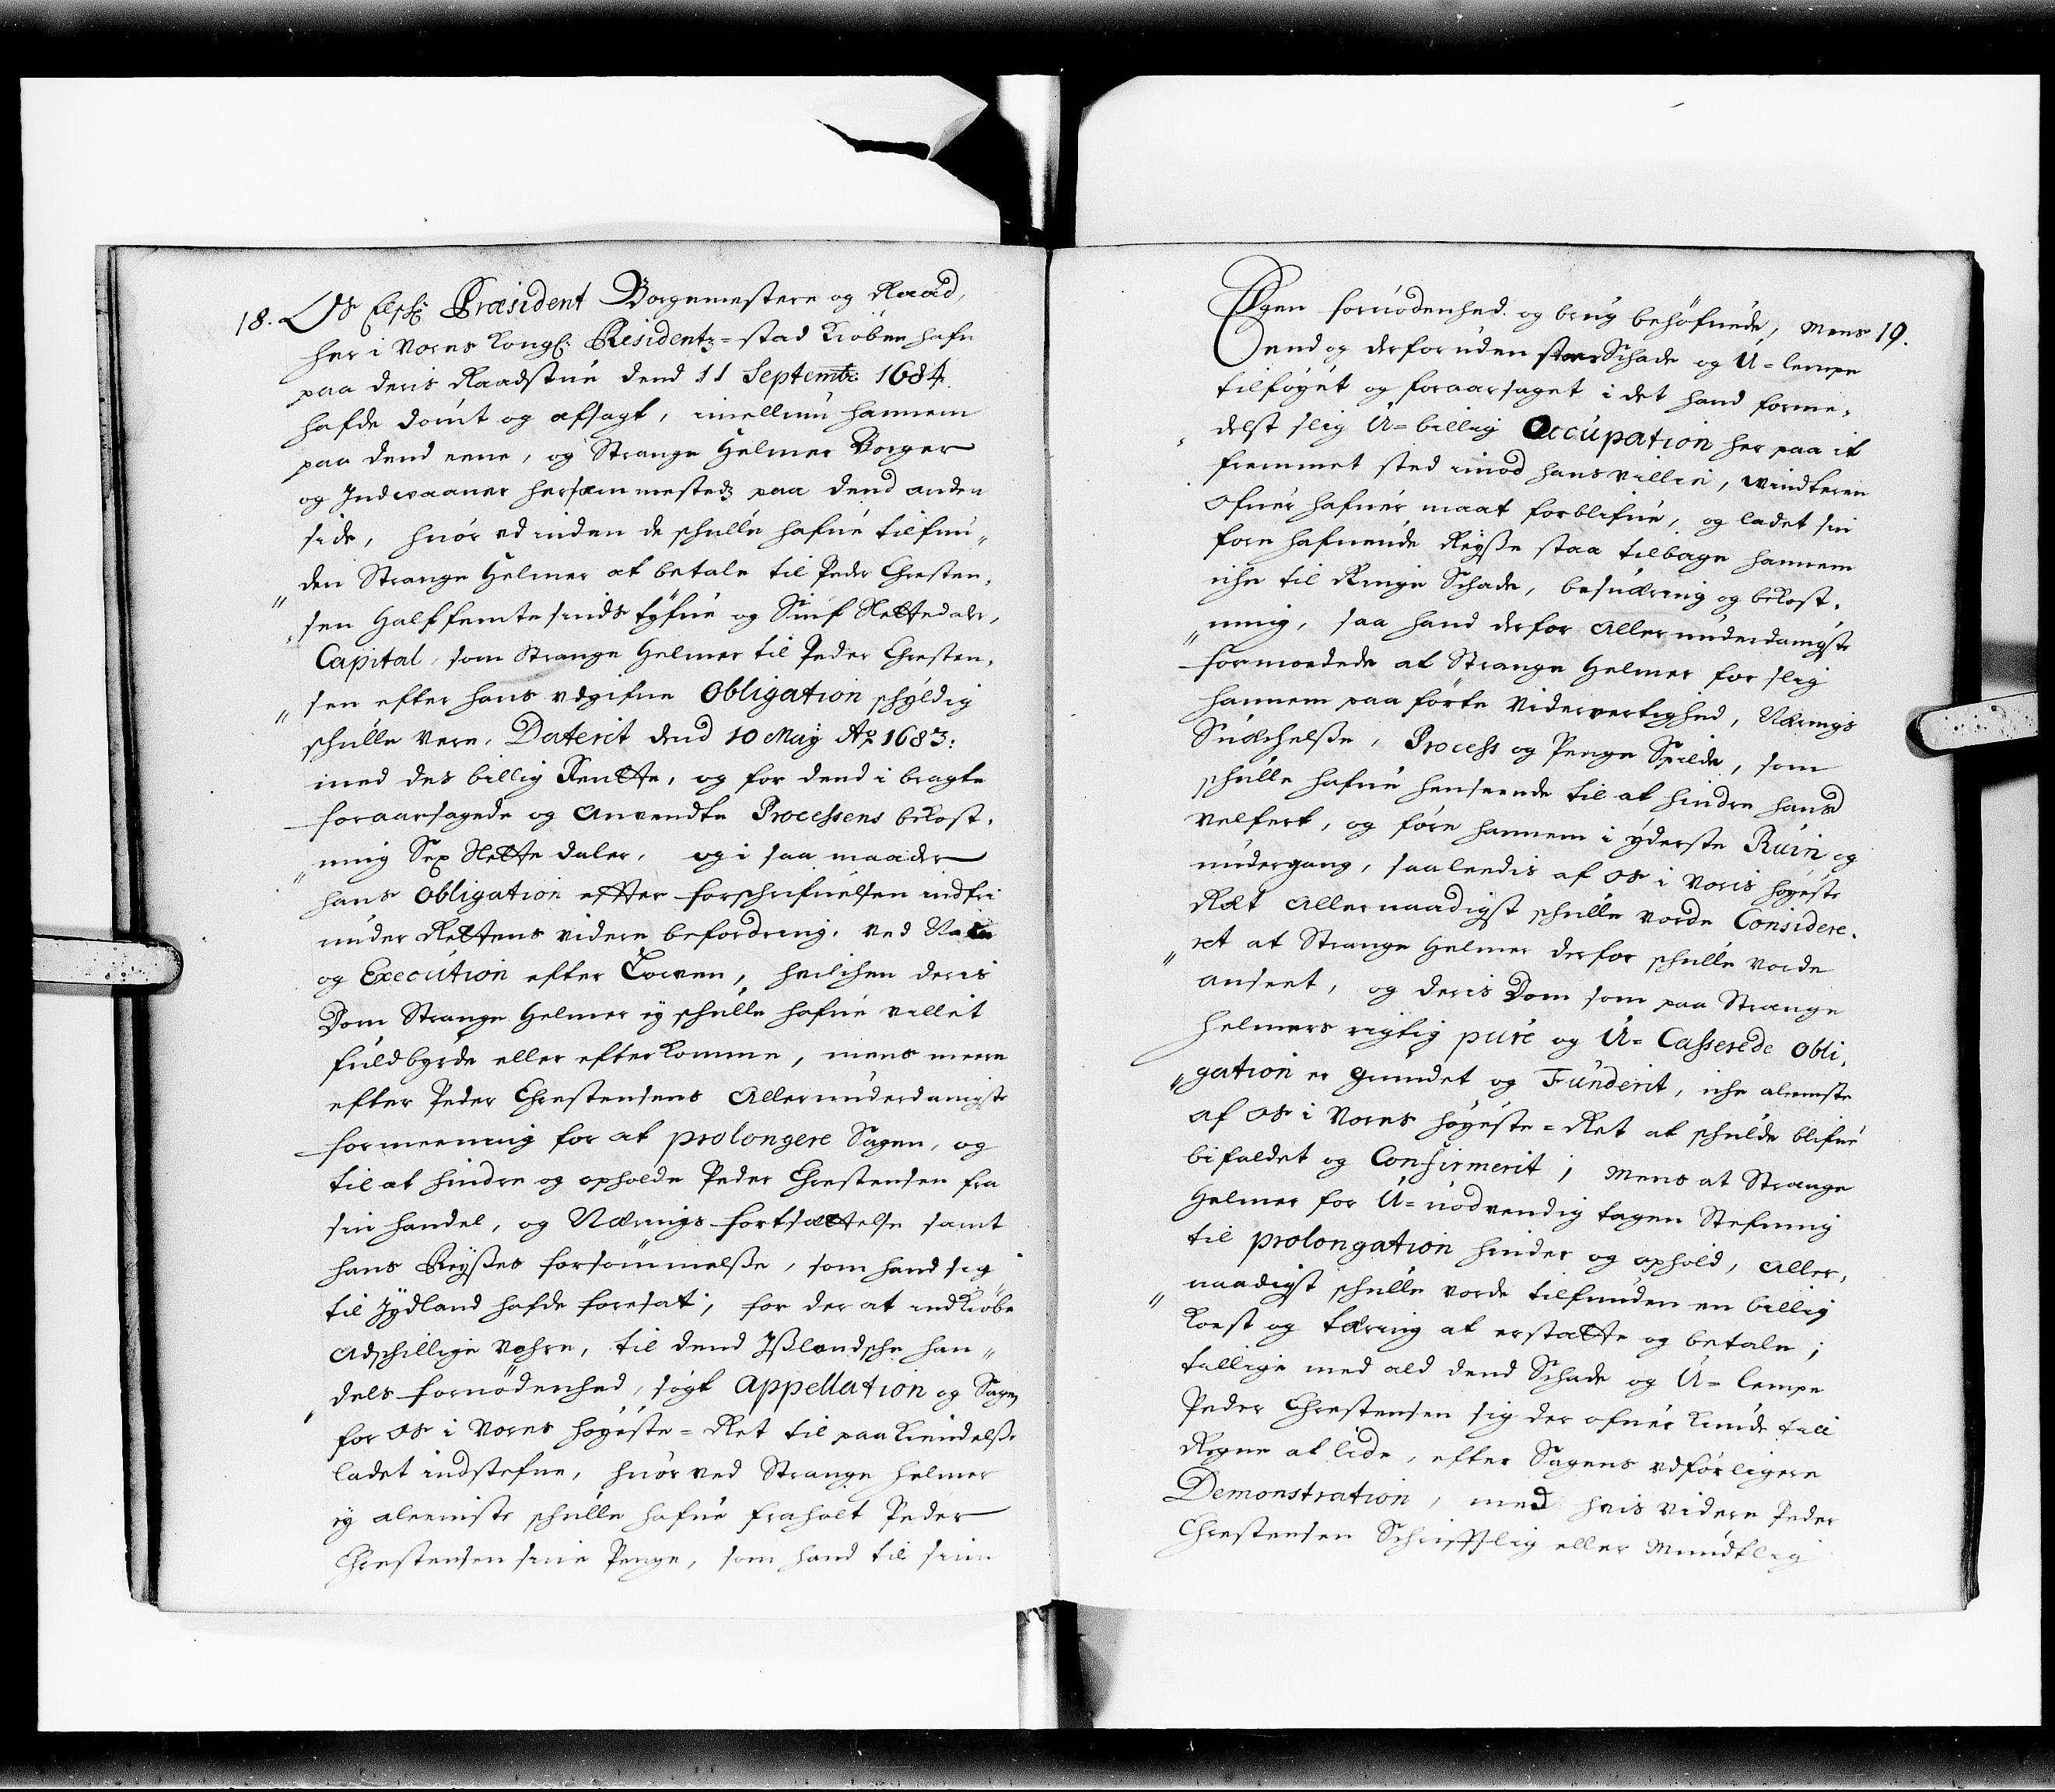 18. Os Elsk: Præsident Borgemestere og Raad,
her i Vores Kongl: Residentz=stad Kiöbenhafn
paa deris Raadstue dend 11 Septembr: 1684.
hafde dömt og afsagt, imellum hannem
paa dend eene, og Strange Helmer Borger
og Indvaaner hersammestedz paa dend anden
side, huor vdinden de schulle hafue tilfun„
den Strange Helmer at betale til Peder Chresten„
sen Halffemtesinds tÿfue og Siuf Slettedaler,
Capital, som Strange Helmer til Peder Chresten„
sen efter hans vdgifne Obligation schÿldig
schulle vere, Daterit dend 10 Maÿ Ao: 1683:
med des billig Rentte, og for dend i bragte
foraarsagede og Anvendte Processens bekost„
ning Sex Slette daler, og i saa maader
hans Obligation effter forschrifuelsen indfri
under Rettens videre befordring, ved Nam
og Execution efter Lowen, hvilchen deris
Dom Strange Helmer eÿ schulle hafue villet
fuldbÿrde eller efterkomme, mens meere
efter Peder Chrestensens Allerunderdanigste
formeening for at prolongere Sagen, og
til at hindre og opholde Peder Chrestensen fra
sin handel, og Nærings fortsættelse samt
hans Reÿßes forsömmelße, som hand sig
til Jÿdland hafde foresat, for der at indkiöbe
Adschillige Vahre, til dend Ißlandsche han„
dels fornödenhed, sögt Appellation og Sagen
for Os i Vores Höÿeste=Ret til paakiendelße
ladet indstefne, huorved Strange Helmer
eÿ aleeniste schulle hafue fraholt Peder
Chrestensen sine Penge, som hand til sinn
Egen fornödenhed og brug behöfuede, Mens 19.
end og derforuden stoer Schade og U=lempe
tilföÿet og foraarsaget i det hand forme„
delst slig U=billig Occupation her paa it
fremmet sted imod hans villie, windteren
ofuer hafuer maat forblifue, og ladet sin
fore hafuende Reÿße staa tilbage hannem
iche til Ringe Schade, besuæring og bekost„
ning, saa hand derfor Allerunderdanigste
formoedede at Strange Helmer for slig
hannem paa förte Vidervertighed, Nærings
Suæchelße, Process og Penge Spilde, som
schulle hafue henseende til at hindre hans
Velfert, og före hannem i ÿderste Ruin og
undergang, saaleedis af Os i Voris höÿeste
Ræt Allernaadigst schulle vorde Considere„
ret at Strange Helmer derfor schulle vorde
anseet, og deris Dom som paa Strange
Helmers rigtig pure og U=Casserede Obli„
gation er grundet og Funderit, iche aleeniste
af Os i Vores Höÿeste=Ret at schulde blifue
bifaldet og Confirmerit; Mens at Strange
Helmer for U=nödvendig tagen Stefning
til prolongation hinder og ophold, Aller„
naadigst schulle vorde tilfunden en billig
Kost og tæring at erstatte og betale;
tillige med ald dend Schade og U=lempe
Peder Chrestensen sig der ofuer kunde till
Regne at lide, efter Sagens vdförligere
Demonstration, med hvis videre Peder
Chrestensen Schriftlig eller Mundtlig